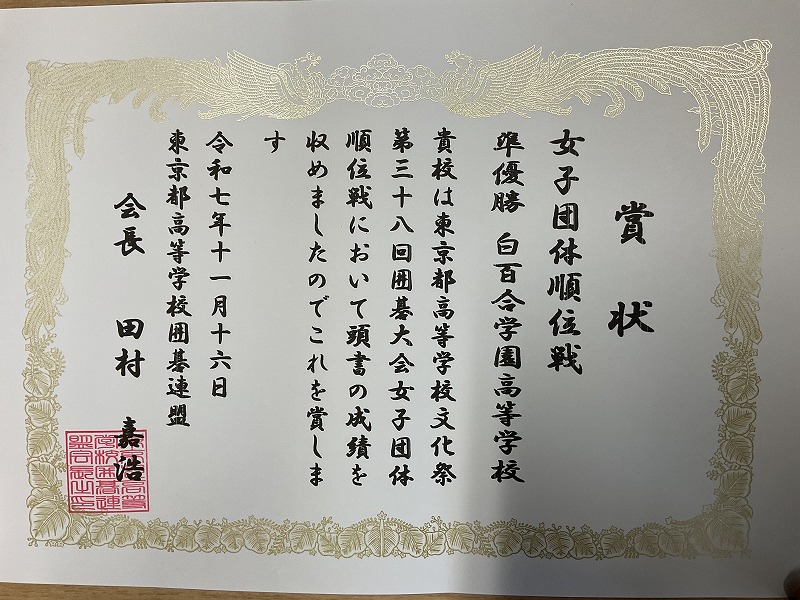 賞状
女子団体順位戦
準優勝 白百合学園高等学校
貴校は東京都高等学校文化祭
第三十八回囲碁大会女子団体
順位戦において頭書の成績を
収めましたのでこれを賞しま
す
令和七年十一月十六日
東京都高等学校囲碁連盟
会長 田村 嘉浩